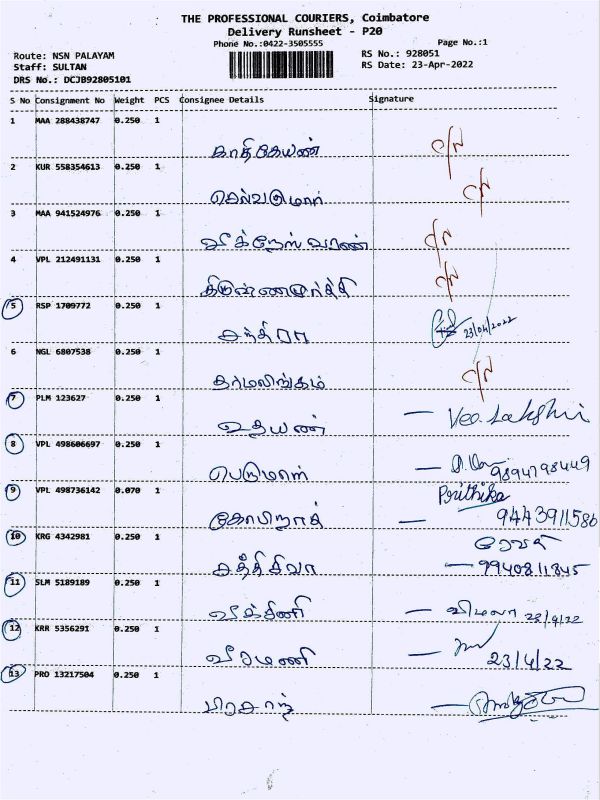 THE PROFESSIONAL COURIERS, Coimbatore
Delivery Runsheet - P20
Phone No.:0422-3505555
Page No.:1
Route: NSN PALAYAM
RS No.: 928051
Staff: SULTAN
RS Date: 23-Apr-2022
DRS No.: DCJB92805101
S No Consignment No Weight PCS Consignee Details Signature
1 MAA 288438747 0.250 1
2 KUR 558354613 0.250 1
செல்வகுமார்
3 MAA 941524976 0.250 1
4 VPL 212491131 0.250 1
5 RSP 1709772 0.250 1
23/04/2022
6 NGL 6807538 0.250 1
7 PLM 123627 0.250 1
உதயண்
8 VPL 498606697 0.250 1
பெருமாள் 9894798449
9 VPL 498736142 0.070 1 Prithika
கோபிநாத் 9443911586
10 KRG 4342981 0.250 1 ரேவதி
சக்திசிவா 9940811845
11 SLM 5189189 0.250 1
விமலா 23/4/22
12 KRR 5356291 0.250 1
வீரமணி 23/4/22
13 PRO 13217504 0.250 1